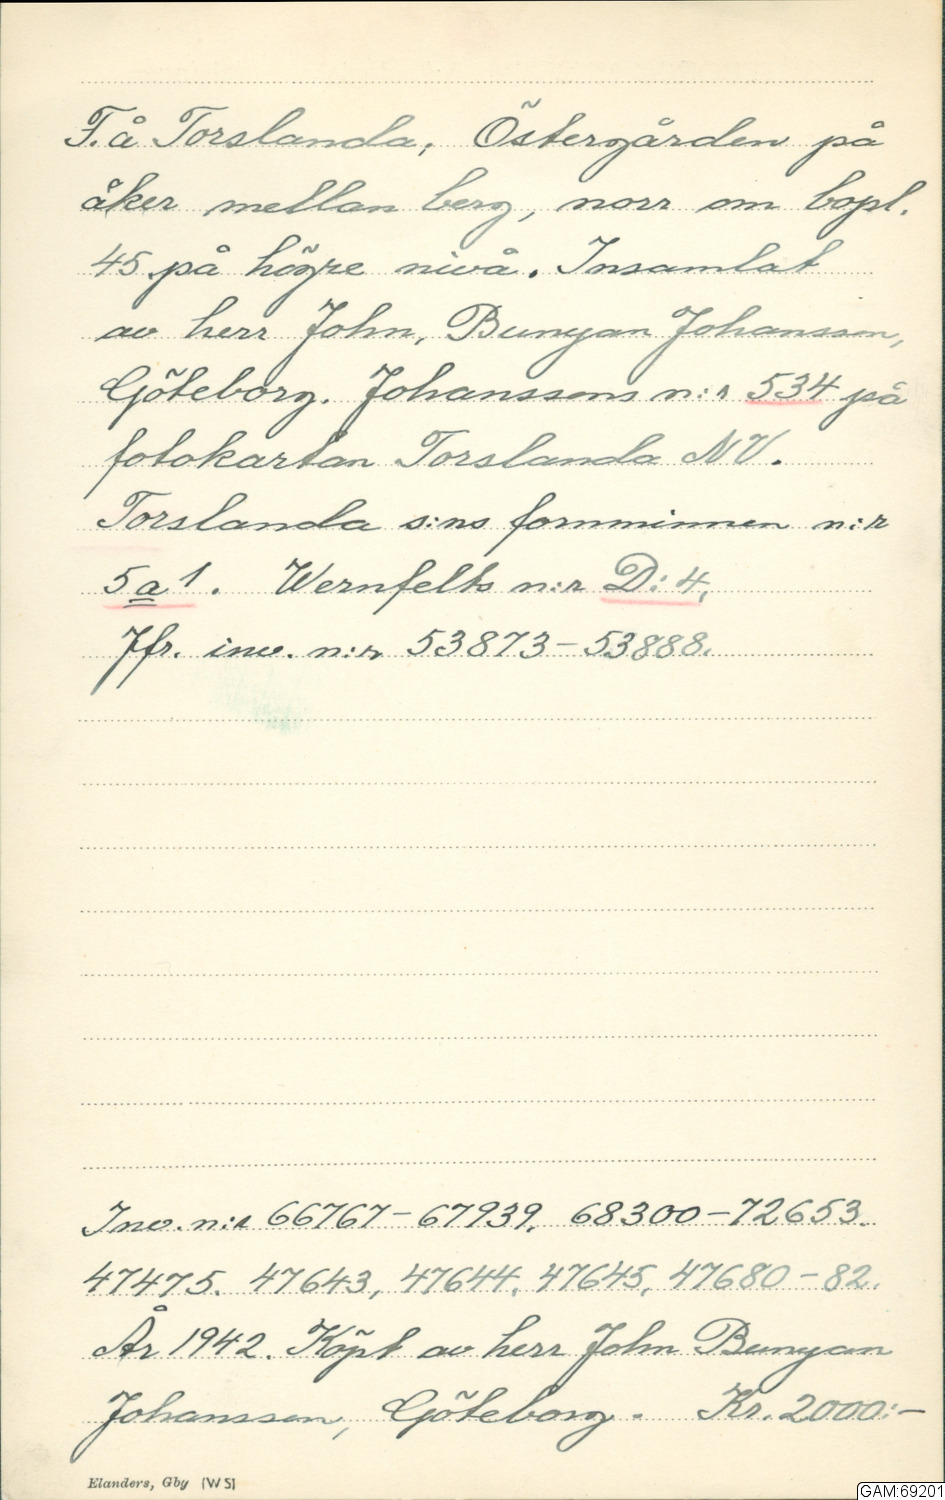 F. å Torslanda, Östergården på
åker mellan berg, norr om bopl.
45 på högre nivå. Insamlat
av herr John, Bunyan Johansson,
Göteborg. Johanssons n:r 534 på
fotokartan Torslanda NV.
Torslanda s:ns fornminnen n:r
5 a 1. Wernfelts n:r D: 4,
Jfr. inv. n:r 53873-53888.
Inv. n:r 66767-67939. 68300-72653.
47475. 47643, 47644, 47645, 47680-82.
År 1942. Köpt av herr John Bunyan
Johansson, Göteborg. Kr. 2000:-
Elanders, Gby (W S)
GAM:69201